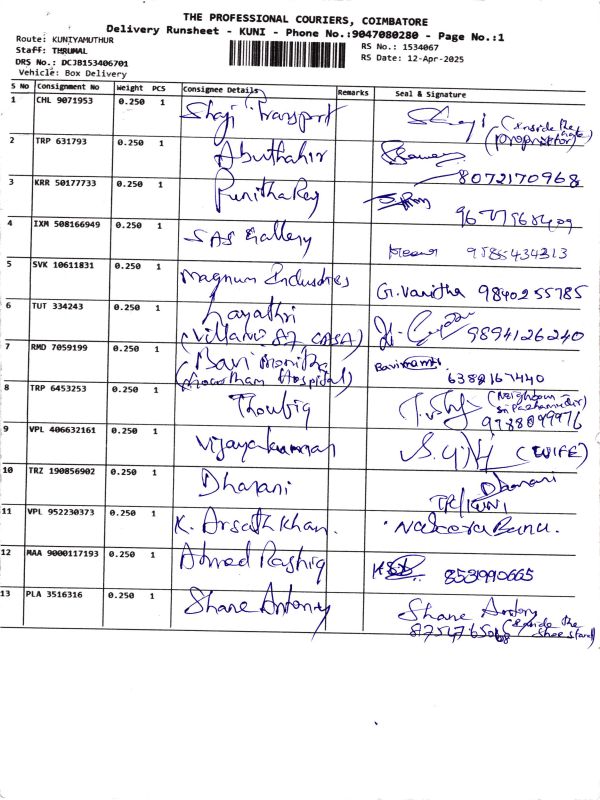 THE PROFESSIONAL COURIERS, COIMBATORE
Delivery Runsheet - KUNI - Phone No.:9047080280 - Page No.:1
Route: KUNIYAMUTHUR
Staff: THRUMAL
DRS No.: DCJB153406701
Vehicle: Box Delivery
RS No.: 1534067
RS Date: 12-Apr-2025
S No Consignment No Weight PCS Consignee Details Remarks Seal & Signature
1 CHL 9071953 0.250 1 Shaji Transport Shaji (inside the gate)
(proprietor)
2 TRP 631793 0.250 1 Abuthahir
8072170968
3 KRR 50177733 0.250 1 Punitha Raj
4 IXM 508166949 0.250 1 SAS Gallery 9585434313
5 SVK 10611831 0.250 1 Magnum Industries G. Vanitha 9840255785
6 TUT 334243 0.250 1 Gayathri
(Villami 87 CASA) 9894126240
7 RMD 7059199 0.250 1 Bavi monitha
(Gowtham Hospital) 6382167440
8 TRP 6453253 1 0.250 Thoubiq (Neighbour
9788099976
9 VPL 406632161 0.250 1 Vijayakumar (WIFE)
10 TRZ 190856902 0.250 1 Dharani Dharani
TPC/KUNI
11 VPL 952230373 0.250 1 K. Arsath Khan. Nabeera Banu.
12 MAA 9000117193 0.250 1 Ahmed Rashiq 8531990665
13 PLA 3516316 0.250 1 Shane Antony Shane Antony
(Beside the
shoe stand)